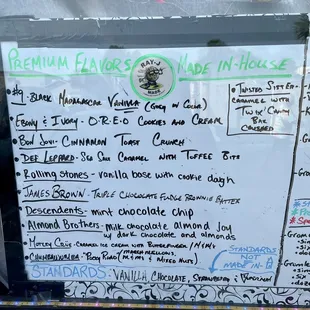 PREMIUM FLAVORS MADE IN-HOUSE
RAY-J
#9-BLACK MADAGASCAR VANILLA (GREY IN COLOR)
EBONY & IVORY - O-R-E-O COOKIES AND CREAM
BON JOVI- CINNAMON TOAST CRUNCH
DEF LEPPARD- SEA SALT CARAMEL WITH TOFFEE BITS
Rolling Stones - vanilla base with cookie dough
JAMES BROWN- TRIPLE CHOCOLATE FUDGE BROWNIE BATTER
Descendents- mint chocolate chip
Almond Brothers- milk chocolate almond Joy
w/ dark chocolate and almonds
MOTLEY CRÜE- CARAMEL ICE CREAM WITH BUTTERFINGER/M+M'S
CHUMBAWAMBA- ROCKY ROAD/MARSHMALLOWS,
(M+MS & MIXED NUTS)
STANDARDS: VANILLA, CHOCOLATE, STRAWBERRY &
STANDARDS
NOT
MADE IN-
TWISTED SISTER-
CARAMEL WITH
TWIX CANDY
BAR
CRUSHED